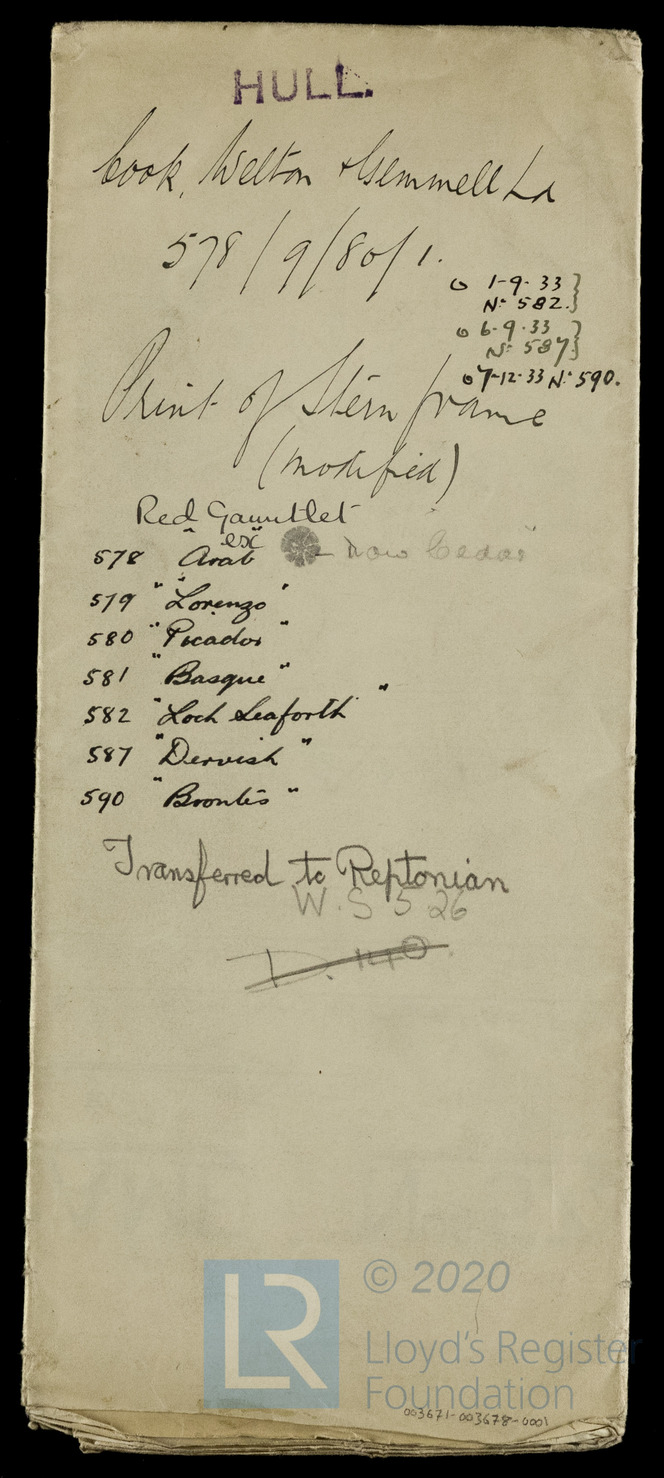 HULL.
Cook, Welton & Gemmell Ld
578/9/80/1.
1-9-33 }
No 582. }
6-9-33 }
No 587 }
7-12-33 No 590.
Print of Stern frame
(modified)
Red Gauntlet
ex
578 "Arab" - now Cedar
579 "Lorenzo"
580 "Picador"
581 "Basque"
582 "Loch Seaforth"
587 "Dervish"
590 "Brontes"
Transferred to Reptonian
W.S 526
D. 140.
LR
© 2020
Lloyd's Register
Foundation
003671-003678-0001